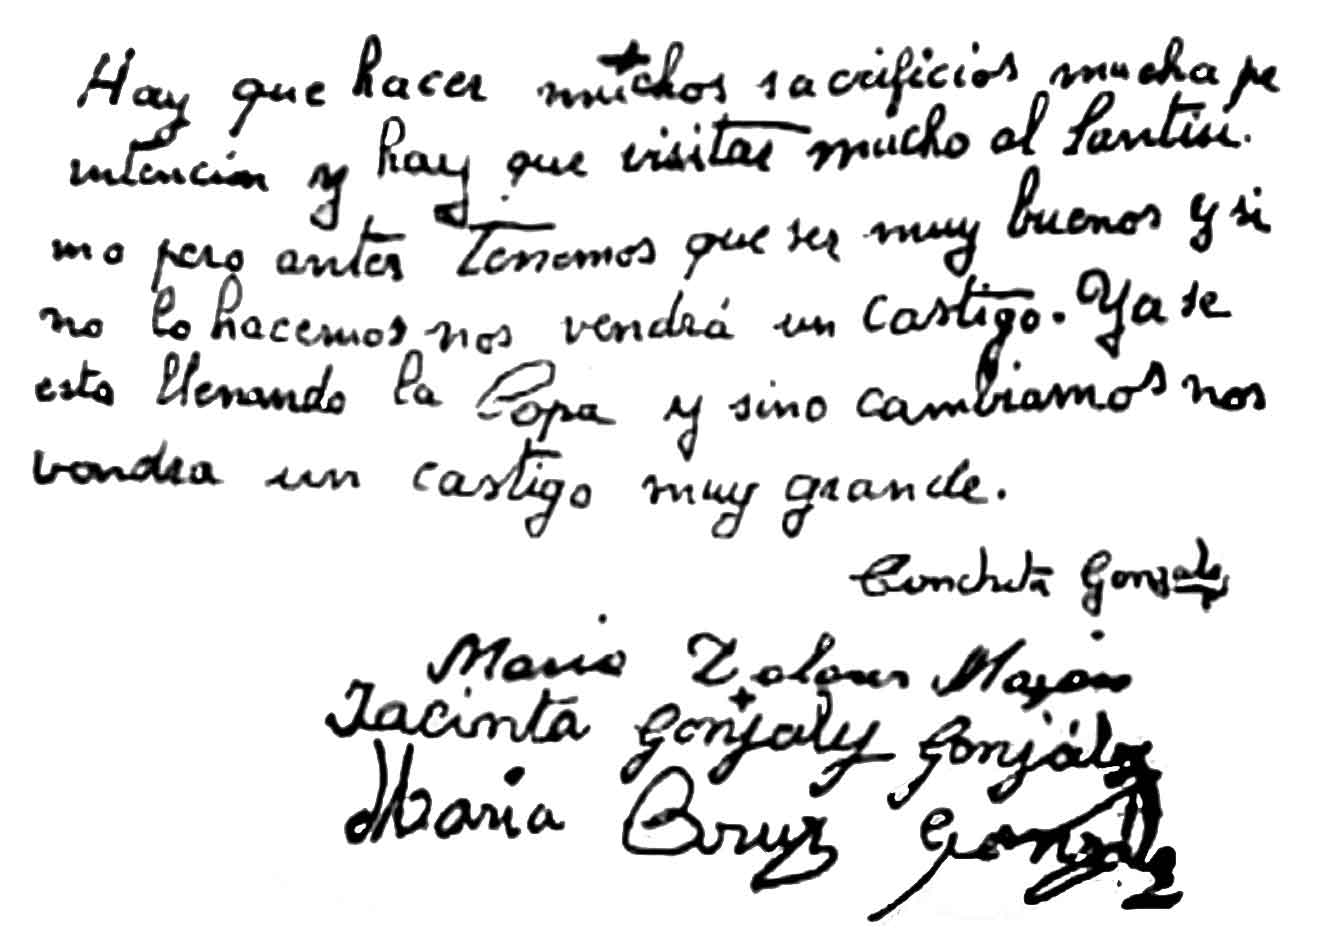 Hay que hacer muchos sacrificios mucha pe
nitencia y hay que visitar mucho al Santisi.
mo pero antes Tenemos que ser muy buenos y si
no lo hacemos nos vendrá un castigo. Ya se
esta llenando la Copa y sino cambiamos nos
vendra un castigo muy grande.
Conchita Gonzalez
Maria Dolores Mazon
Jacinta Gonzalez González
Maria Cruz Gonzalez